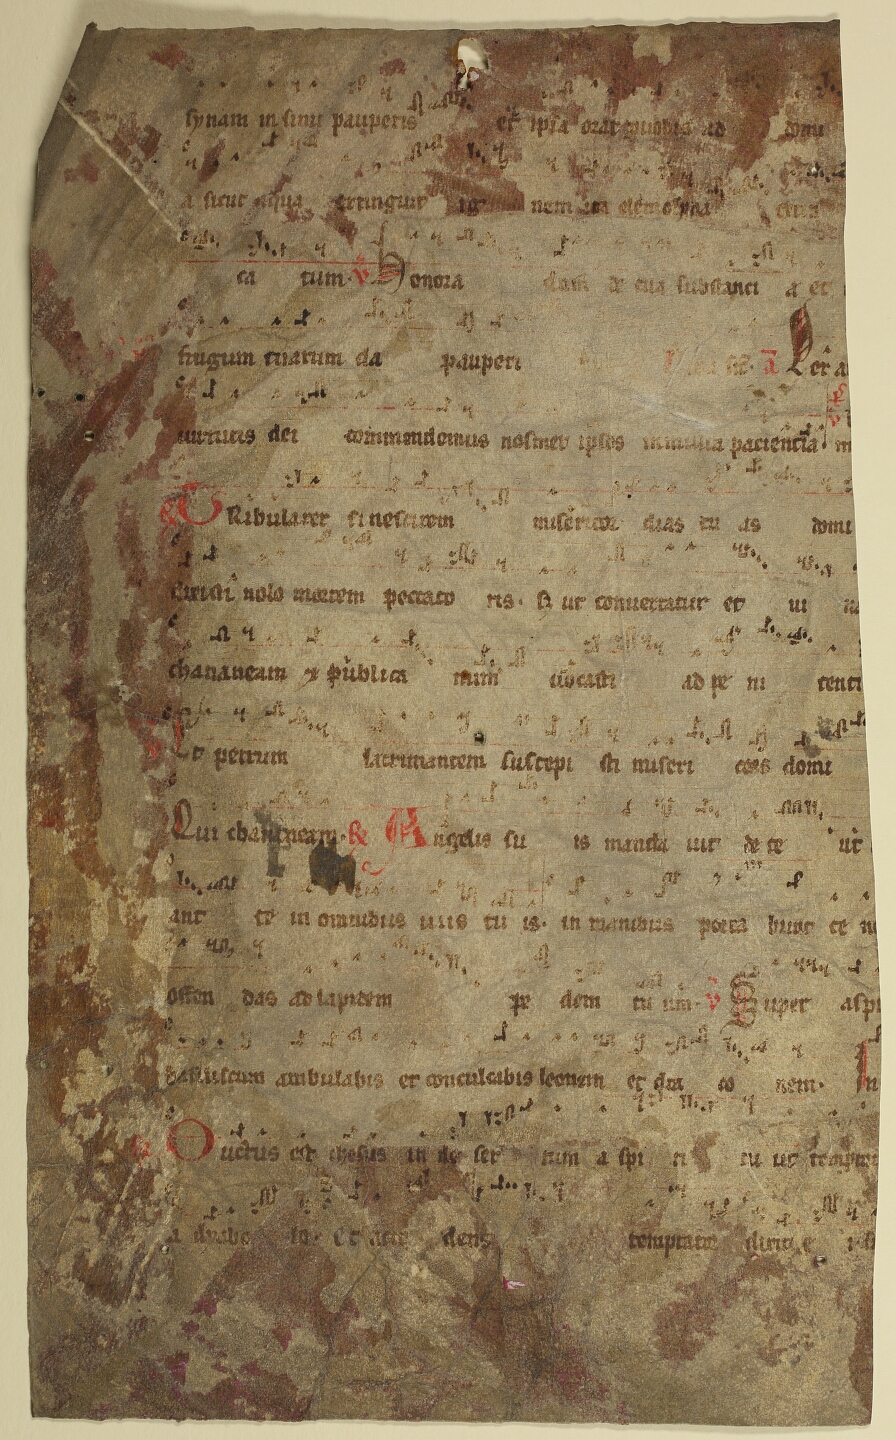 synam in sinu pauperis et ipsa orat pro nobis ad domi
a sicut aqua extinguit ig nem ita elemosina
ca tum. v Honora dum de tua substanci a et
frugum tuarum da pauperi
uirtutis dei commendemus nosmet ipsos in multa paciencia
Tribularer si nescirem misericor dias tu as domi
dixisti nolo mortem peccato ris. sz ut conuertatur et ui
chananeam et publica num uocasti ad pe ni tenti
Et petrum lacrimantem suscepi sti miseri cors domi
Qui chananeam. Angelis su is manda uit de te ut
ant te in omnibus uiis tu is. in manibus porta bunt te n
offen das ad lapidem pe dem tu um. v Super aspi
basiliscum ambulabis et conculcabis leonem et dra co nem. In
Ductus est ihesus in de ser tum a spi ri tu ut
a dyabo lo. Et acce dens temptator dixit e